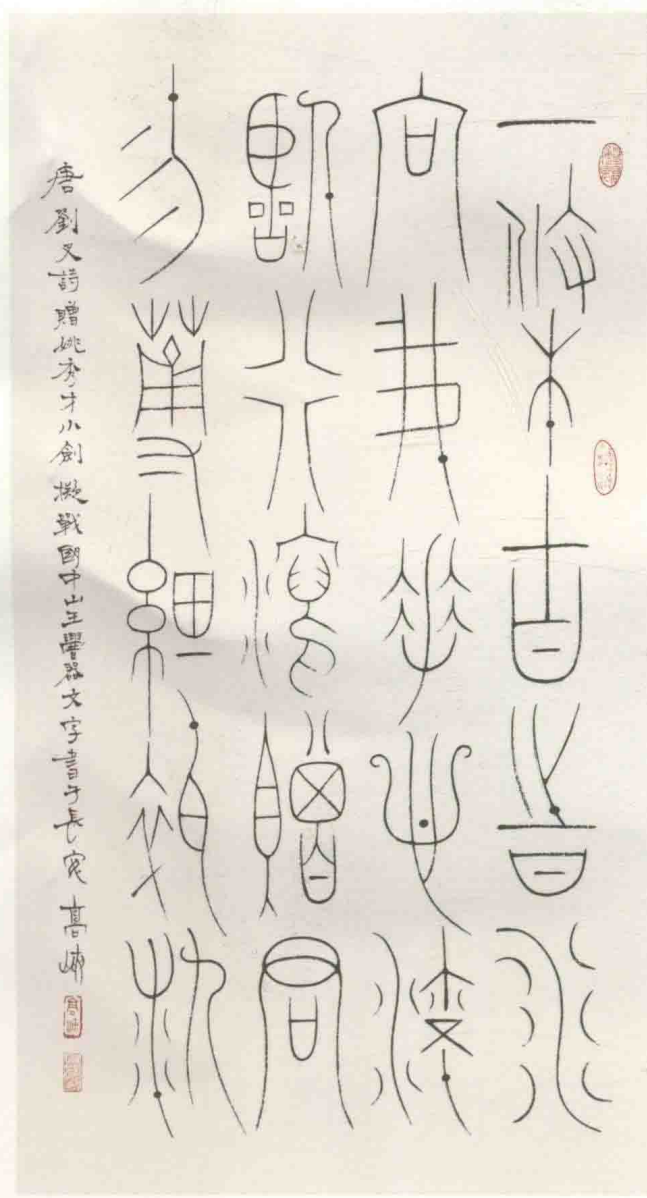 一條古時水
向我手心流
臨行瀉贈君
勿薄細碎仇
唐劉叉詩贈姚秀才小劍擬戰國中山王譽器文字書于長安 高峽